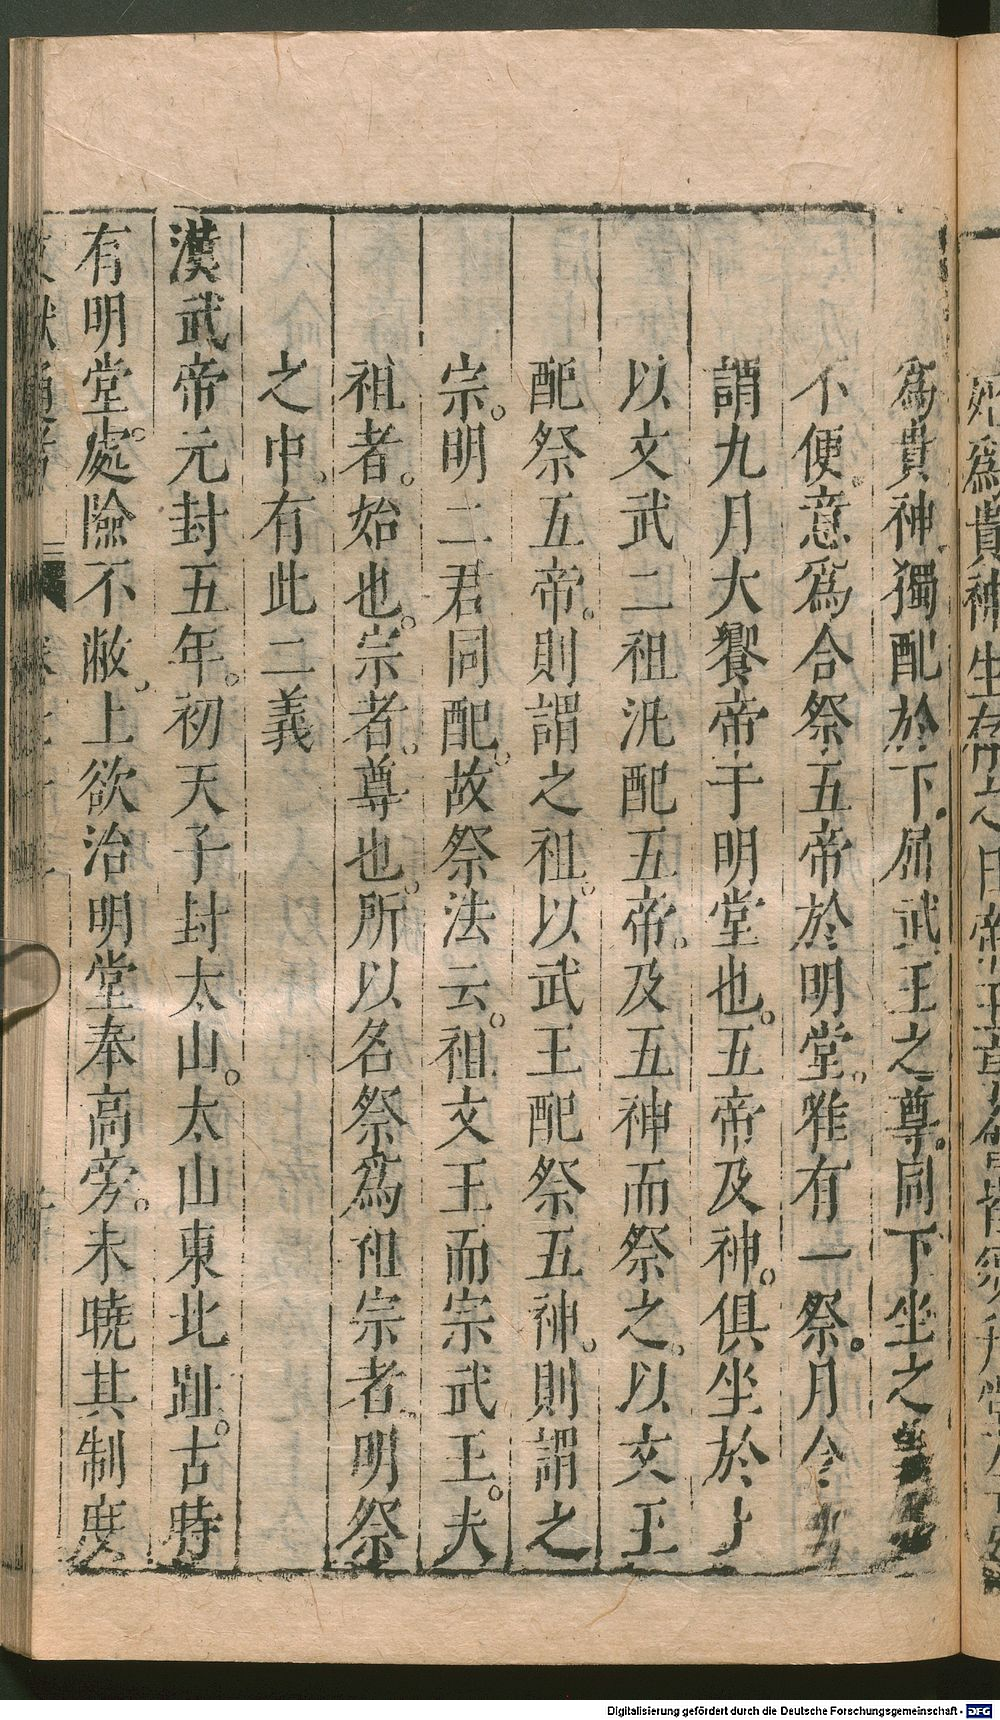 為貴神獨配於下屈武王之尊同下坐之
不便意為合祭五帝於明堂唯有一祭月令
謂九月大饗帝于明堂也五帝及神俱坐於上
以文武二祖汎配五帝及五神而祭之以文王
配祭五帝則謂之祖以武王配祭五神則謂之
宗明二君同配故祭法云祖文王而宗武王夫
祖者始也宗者尊也所以名祭為祖宗者明祭
之中有此二義
漢武帝元封五年初天子封太山太山東北趾古時
有明堂處險不敝上欲治明堂奉高旁未曉其制度
Digitalisierung gefördert durch die Deutsche Forschungsgemeinschaft - DFG